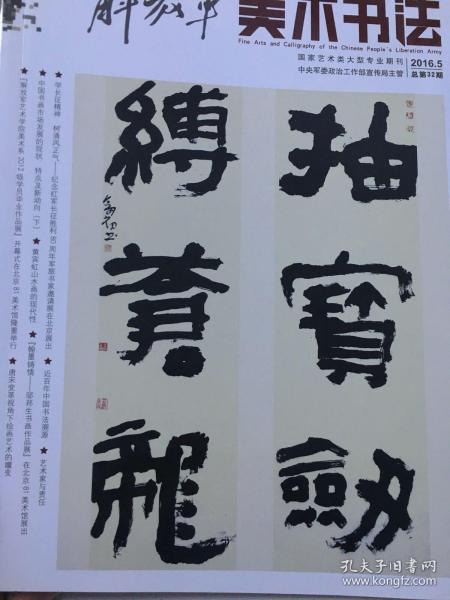 解放军
美术书法
Fine Arts and Calligraphy of the Chinese People's Liberation Army
国家艺术类大型专业期刊
中央军委政治工作部宣传局主管
2016.5
总第32期
抽寶劒
縛蒼龍
★学长征精神 树清风正气——纪念红军长征胜利80周年军旅书家邀请展在北京展出 ★近百年中国书法溯源 ★艺术家与责任
★中国书画市场发展的现状、特点及新动向（下） ★黄宾虹山水画的现代性 ★『翰墨铸情——邵邦生书画作品展』在北京81美术馆展出
★『解放军艺术学院美术系2012级学员毕业作品展』开幕式在北京81美术馆隆重举行 ★唐宋变革视角下绘画艺术的嬗变
孔夫子旧书网
www.kongfz.com